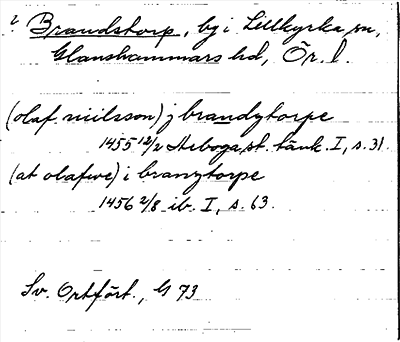 ? Brandstorp, by i Lillkyrka sn,
Glanshammars hd, Ör. l.
(olaf niilsson) j brandytorpe
1455 12/2 Arboga st. tänk. I, s. 31
(at olafwe) i branytorpe
1456 2/8 ib. I, s. 63.
Sv. Ortfört., G 73